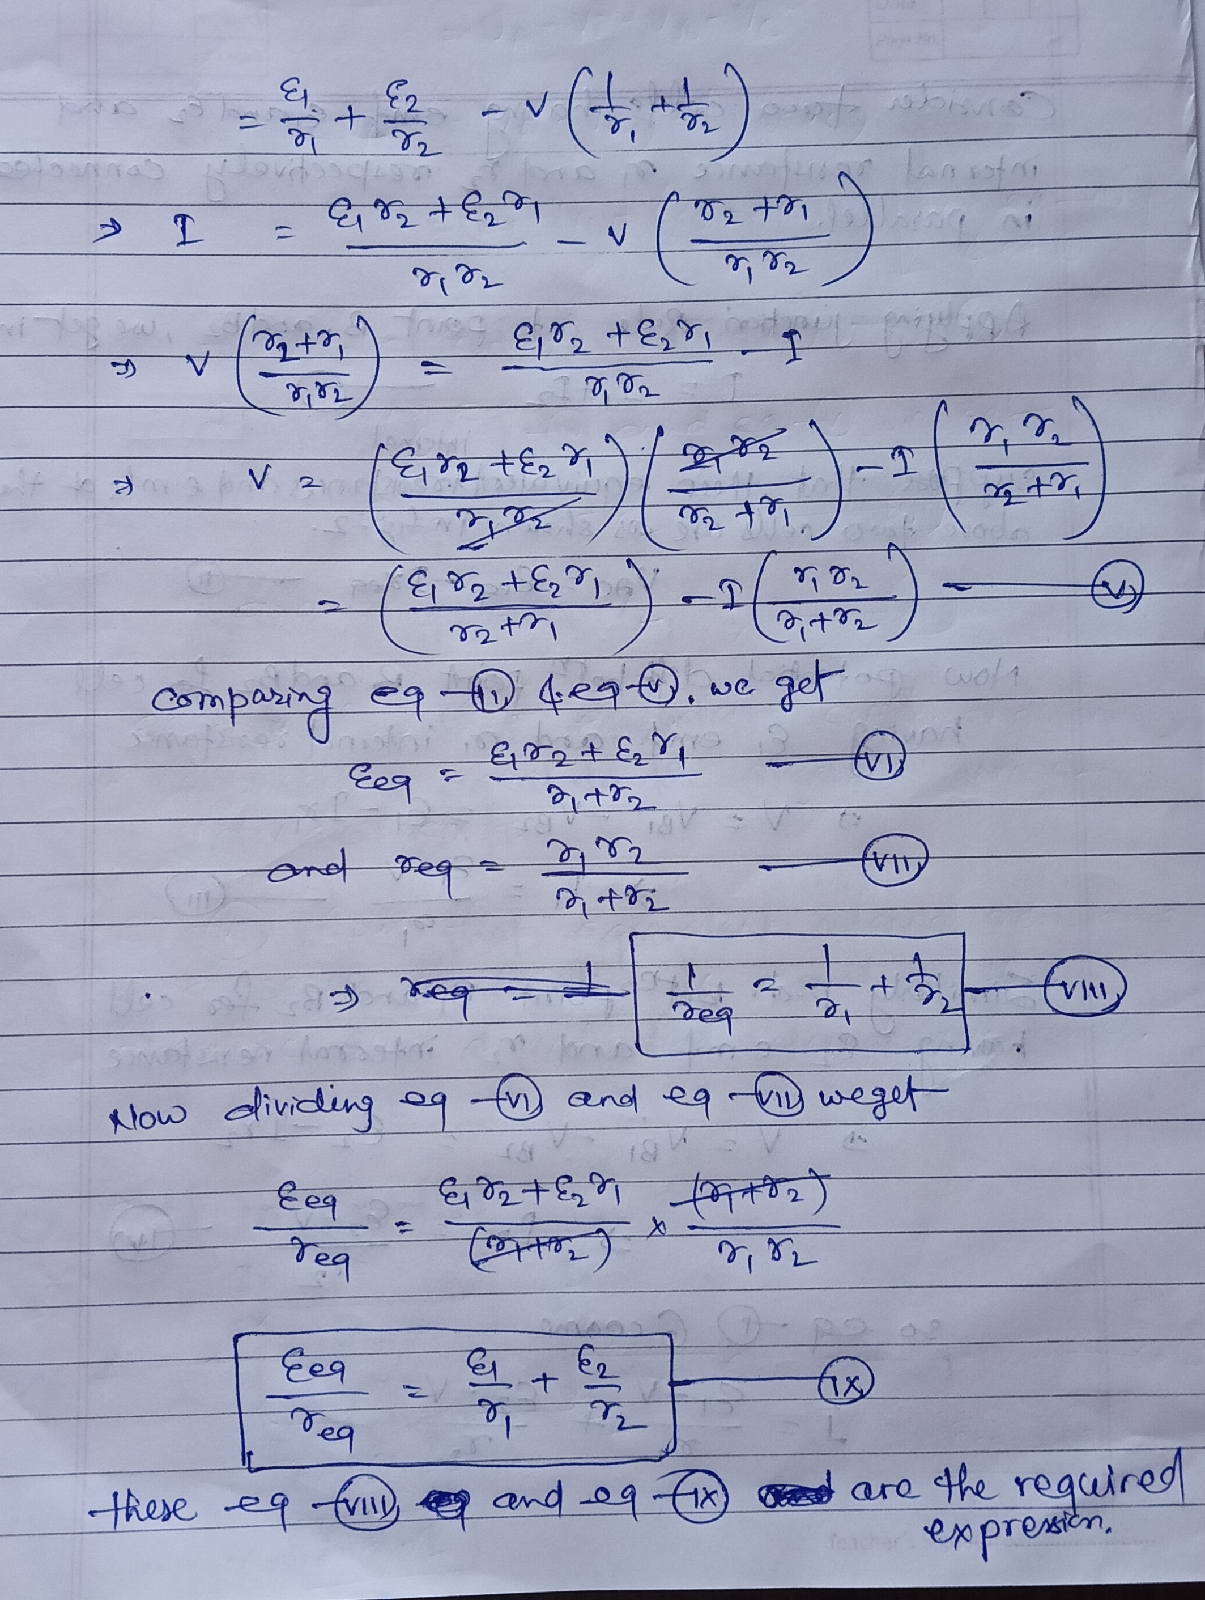 = ε₁/r₁ + ε₂/r₂ - V (1/r₁ + 1/r₂)
⇒ I = (ε₁r₂ + ε₂r₁)/(r₁r₂) - V ((r₂ + r₁)/(r₁r₂))
⇒ V ((r₂ + r₁)/(r₁r₂)) = (ε₁r₂ + ε₂r₁)/(r₁r₂) - I
⇒ V = ((ε₁r₂ + ε₂r₁)/(r₁r₂)) ((r₁r₂)/(r₂ + r₁)) - I ((r₁r₂)/(r₂ + r₁))
= ((ε₁r₂ + ε₂r₁)/(r₂ + r₁)) - I ((r₁r₂)/(r₁ + r₂)) — (V)
comparing eq - (ii) & eq - (v), we get
εeq = (ε₁r₂ + ε₂r₁)/(r₁ + r₂) — (VI)
and req = (r₁r₂)/(r₁ + r₂) — (VII)
⇒ req = 1 1/req = 1/r₁ + 1/r₂ — (VIII)
Now dividing eq - (VI) and eq - (VII) we get
εeq/req = (ε₁r₂ + ε₂r₁)/(r₁+r₂) × (r₁+r₂)/(r₁r₂)
εeq/req = ε₁/r₁ + ε₂/r₂ — (IX)
these eq - (VIII) and eq - (IX) are the required
expression.